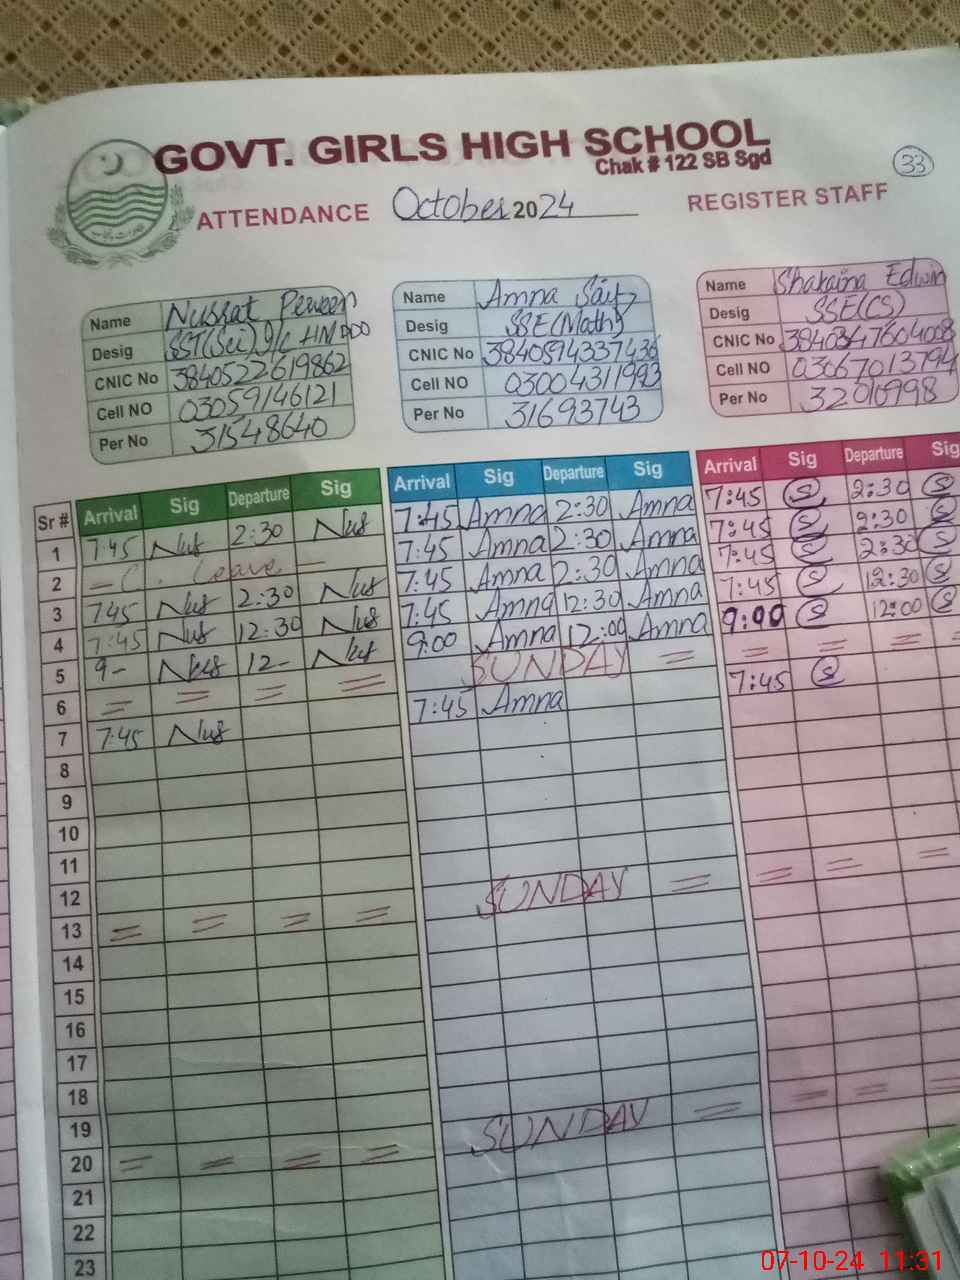 GOVT. GIRLS HIGH SCHOOL
Chak # 122 SB Sgd
33
ATTENDANCE October 2024 REGISTER STAFF
Name Nusrat Perveen
Desig SST(Sci) I/c HM/DDO
CNIC No 3840522619862
Cell NO 03059146121
Per No 31548640
Name Amna
Desig SSE(Math)
CNIC No 3840574337436
Cell NO 03004311993
Per No 31693743
Name Sharaina Edwin
Desig SSE(CS)
CNIC No 3840347604008
Cell NO 03067013794
Per No 32010998
Sr # Arrival Sig Departure Sig Arrival Sig Departure Sig Arrival Sig Departure Sig
1 7:45 Nus 2:30 Nus 7:45 Amna 2:30 Amna 7:45 S 2:30 S
2 – C. Leave – 7:45 Amna 2:30 Amna 7:45 S 2:30 S
3 7:45 Nus 2:30 Nus 7:45 Amna 2:30 Amna 7:45 S 2:30 S
4 7:45 Nus 12:30 Nus 7:45 Amna 12:30 Amna 7:45 S 12:30 S
5 9- Nus 12- Nus 9:00 Amna 12:00 Amna 9:00 S 12:00 S
6 = = = = SUNDAY = = = =
7 7:45 Nus 7:45 Amna 7:45 S
8
9
10
11
12
13 = = = = SUNDAY = = = =
14
15
16
17
18
19
20 = = = = SUNDAY = = = =
21
22
23
07-10-24 11:31